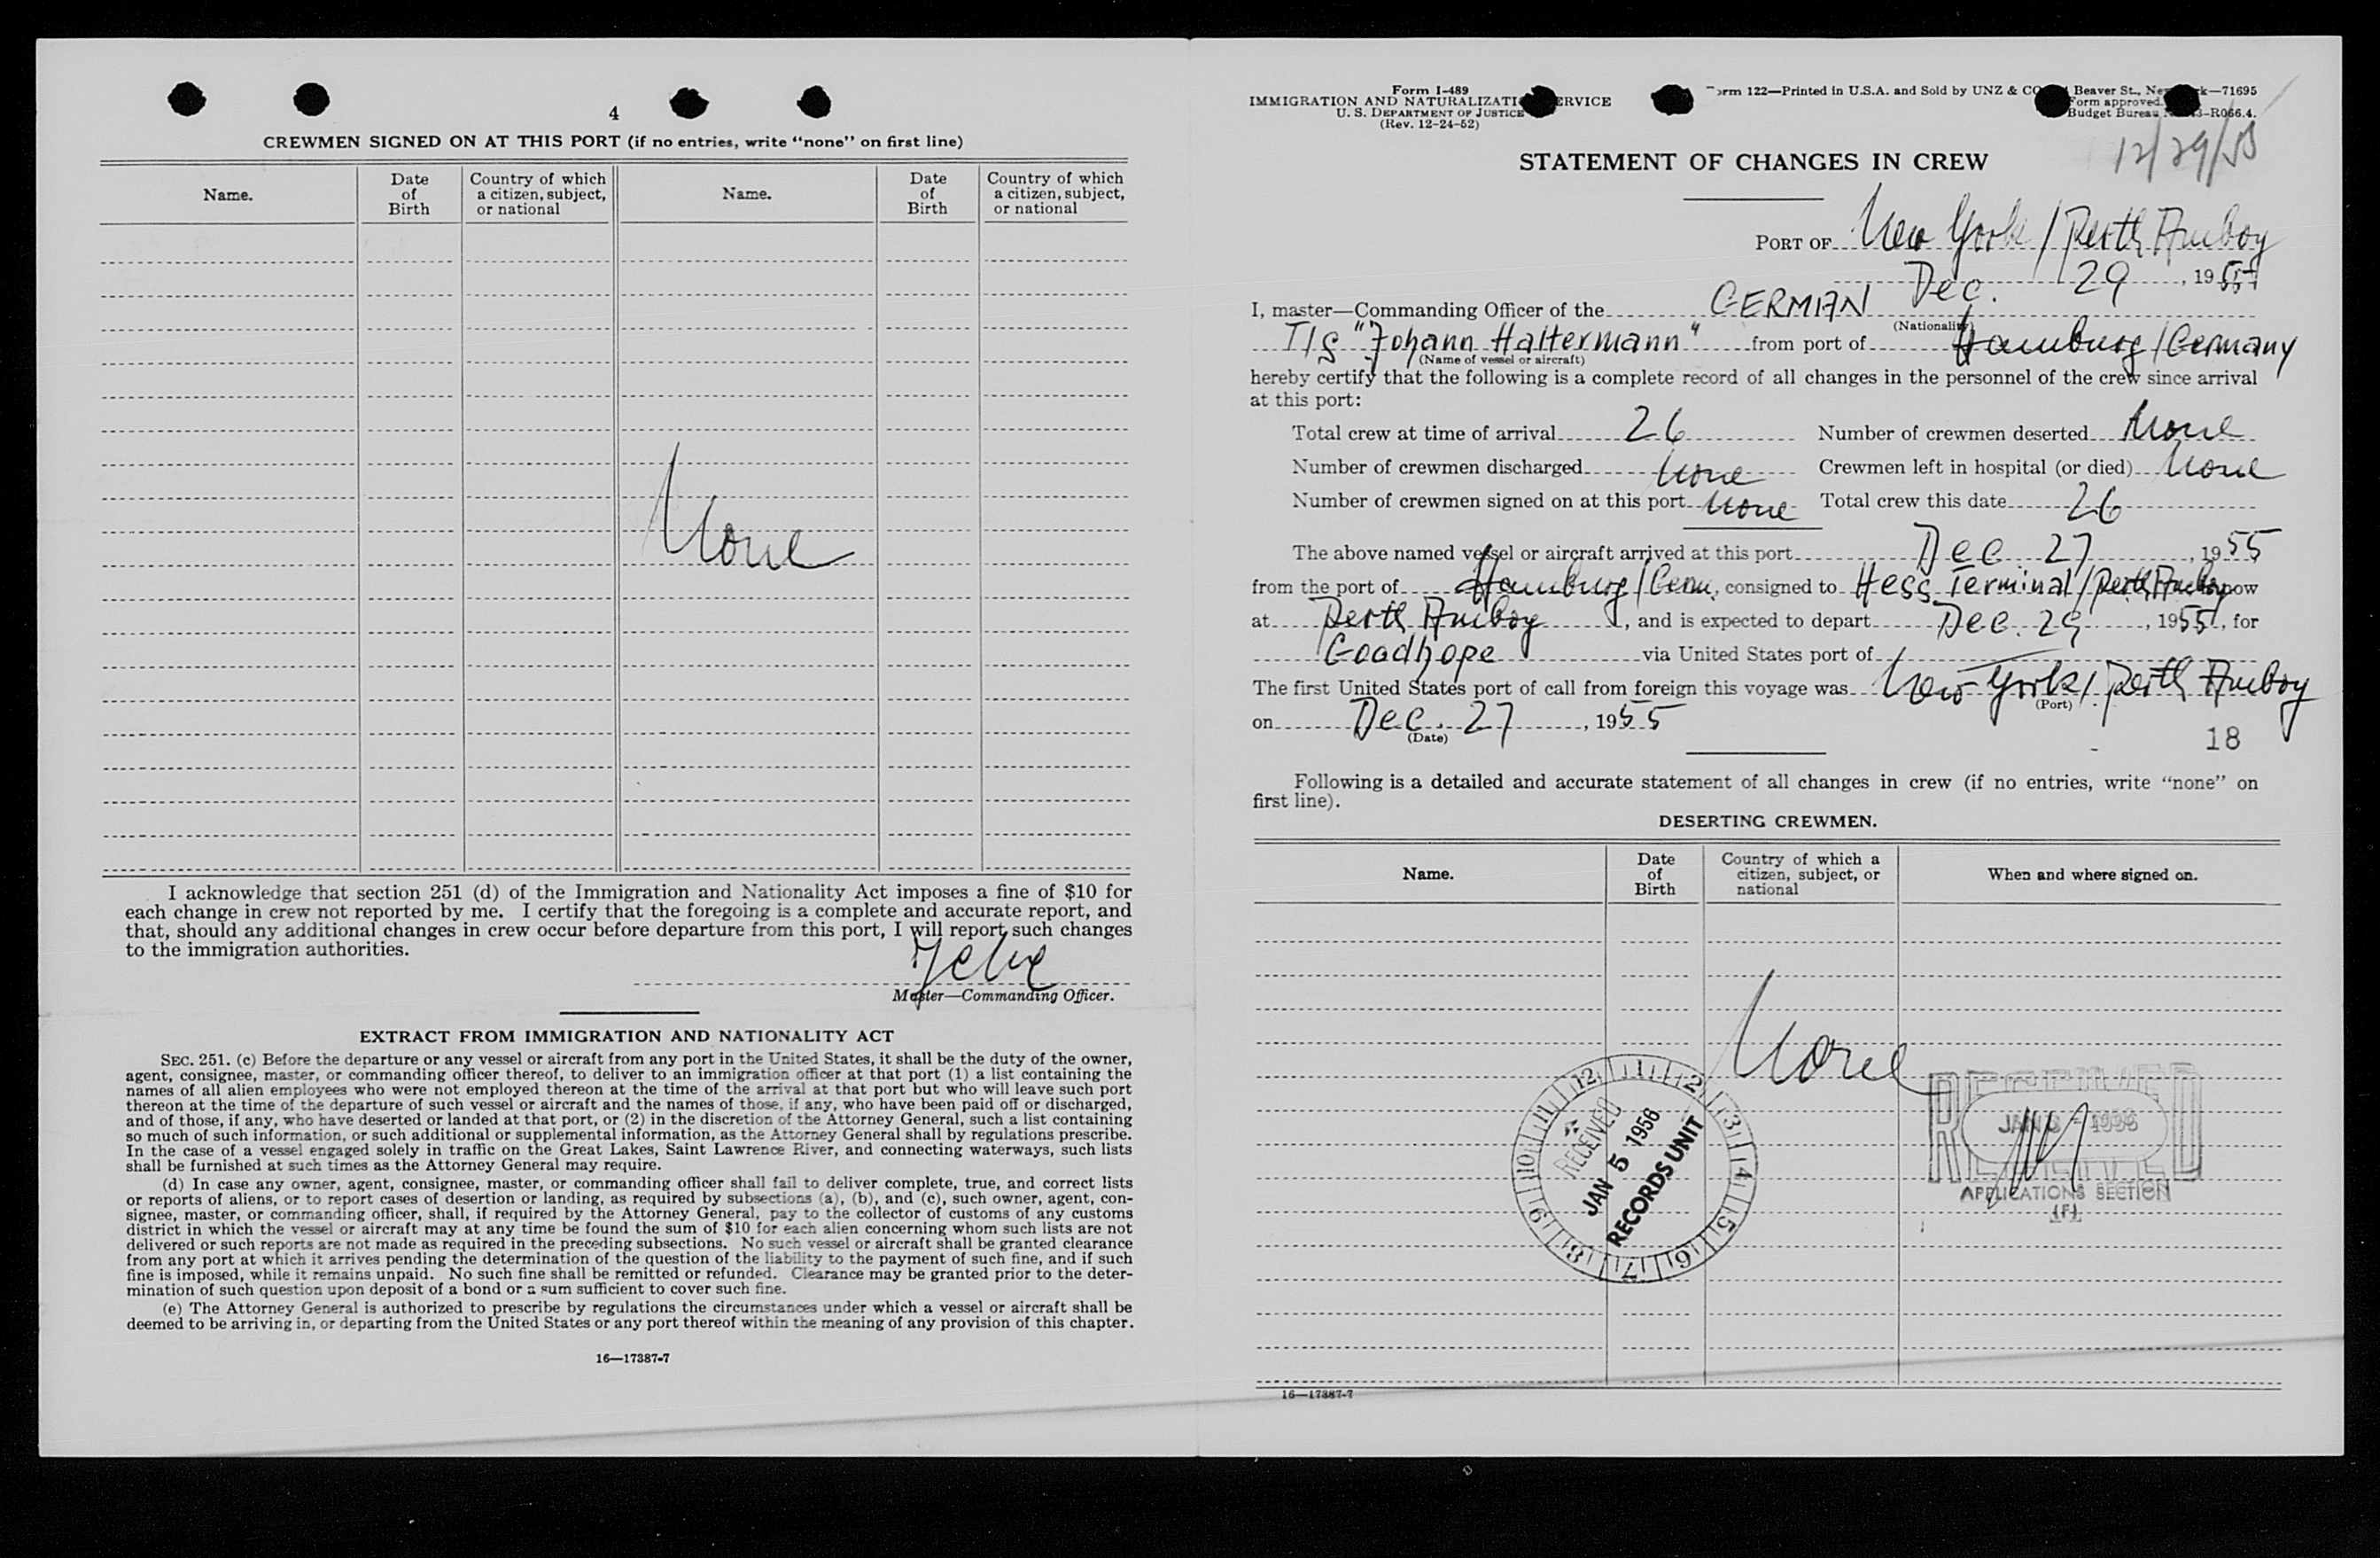 4
CREWMEN SIGNED ON AT THIS PORT (if no entries, write "none" on first line)
Name. Date of Birth Country of which a citizen, subject, or national Name. Date of Birth Country of which a citizen, subject, or national
None
I acknowledge that section 251 (d) of the Immigration and Nationality Act imposes a fine of $10 for
each change in crew not reported by me. I certify that the foregoing is a complete and accurate report, and
that, should any additional changes in crew occur before departure from this port, I will report such changes
to the immigration authorities.
Master—Commanding Officer.
EXTRACT FROM IMMIGRATION AND NATIONALITY ACT
SEC. 251. (c) Before the departure or any vessel or aircraft from any port in the United States, it shall be the duty of the owner,
agent, consignee, master, or commanding officer thereof, to deliver to an immigration officer at that port (1) a list containing the
names of all alien employees who were not employed thereon at the time of the arrival at that port but who will leave such port
thereon at the time of the departure of such vessel or aircraft and the names of those, if any, who have been paid off or discharged,
and of those, if any, who have deserted or landed at that port, or (2) in the discretion of the Attorney General, such a list containing
so much of such information, or such additional or supplemental information, as the Attorney General shall by regulations prescribe.
In the case of a vessel engaged solely in traffic on the Great Lakes, Saint Lawrence River, and connecting waterways, such lists
shall be furnished at such times as the Attorney General may require.
(d) In case any owner, agent, consignee, master, or commanding officer shall fail to deliver complete, true, and correct lists
or reports of aliens, or to report cases of desertion or landing, as required by subsections (a), (b), and (c), such owner, agent, con-
signee, master, or commanding officer, shall, if required by the Attorney General, pay to the collector of customs of any customs
district in which the vessel or aircraft may at any time be found the sum of $10 for each alien concerning whom such lists are not
delivered or such reports are not made as required in the preceding subsections. No such vessel or aircraft shall be granted clearance
from any port at which it arrives pending the determination of the question of the liability to the payment of such fine, and if such
fine is imposed, while it remains unpaid. No such fine shall be remitted or refunded. Clearance may be granted prior to the deter-
mination of such question upon deposit of a bond or a sum sufficient to cover such fine.
(e) The Attorney General is authorized to prescribe by regulations the circumstances under which a vessel or aircraft shall be
deemed to be arriving in, or departing from the United States or any port thereof within the meaning of any provision of this chapter.
16—17387-7
Form I-489
IMMIGRATION AND NATURALIZATI ERVICE
U. S. DEPARTMENT OF JUSTICE
(Rev. 12-24-52)
orm 122—Printed in U.S.A. and Sold by UNZ & CO Beaver St., Ne k—71695
Form approved.
Budget Bureau -R066.4.
12/29/55
STATEMENT OF CHANGES IN CREW
PORT OF New York / Perth Amboy
Dec. 29, 1955
I, master—Commanding Officer of the GERMAN
(Nationality)
T/S "Johann Haltermann" from port of Hamburg / Germany
(Name of vessel or aircraft)
hereby certify that the following is a complete record of all changes in the personnel of the crew since arrival
at this port:
Total crew at time of arrival 26 Number of crewmen deserted None
Number of crewmen discharged None Crewmen left in hospital (or died) None
Number of crewmen signed on at this port None Total crew this date 26
The above named vessel or aircraft arrived at this port Dec 27, 1955
from the port of Hamburg / Germ., consigned to Hess Terminal / Perth Amboy now
at Perth Amboy, and is expected to depart Dec. 29, 1955, for
Goodhope via United States port of —
The first United States port of call from foreign this voyage was New York / Perth Amboy
(Port)
on Dec. 27, 1955
(Date)
18
Following is a detailed and accurate statement of all changes in crew (if no entries, write "none" on
first line).
DESERTING CREWMEN.
Name. Date of Birth Country of which a citizen, subject, or national When and where signed on.
None
12 1 2 3 4 5 6 7 8 9 10 11
RECEIVED
JAN 5 1956
RECORDS UNIT
RECEIVED
APPLICATIONS SECTION
(F)
16—17387-7